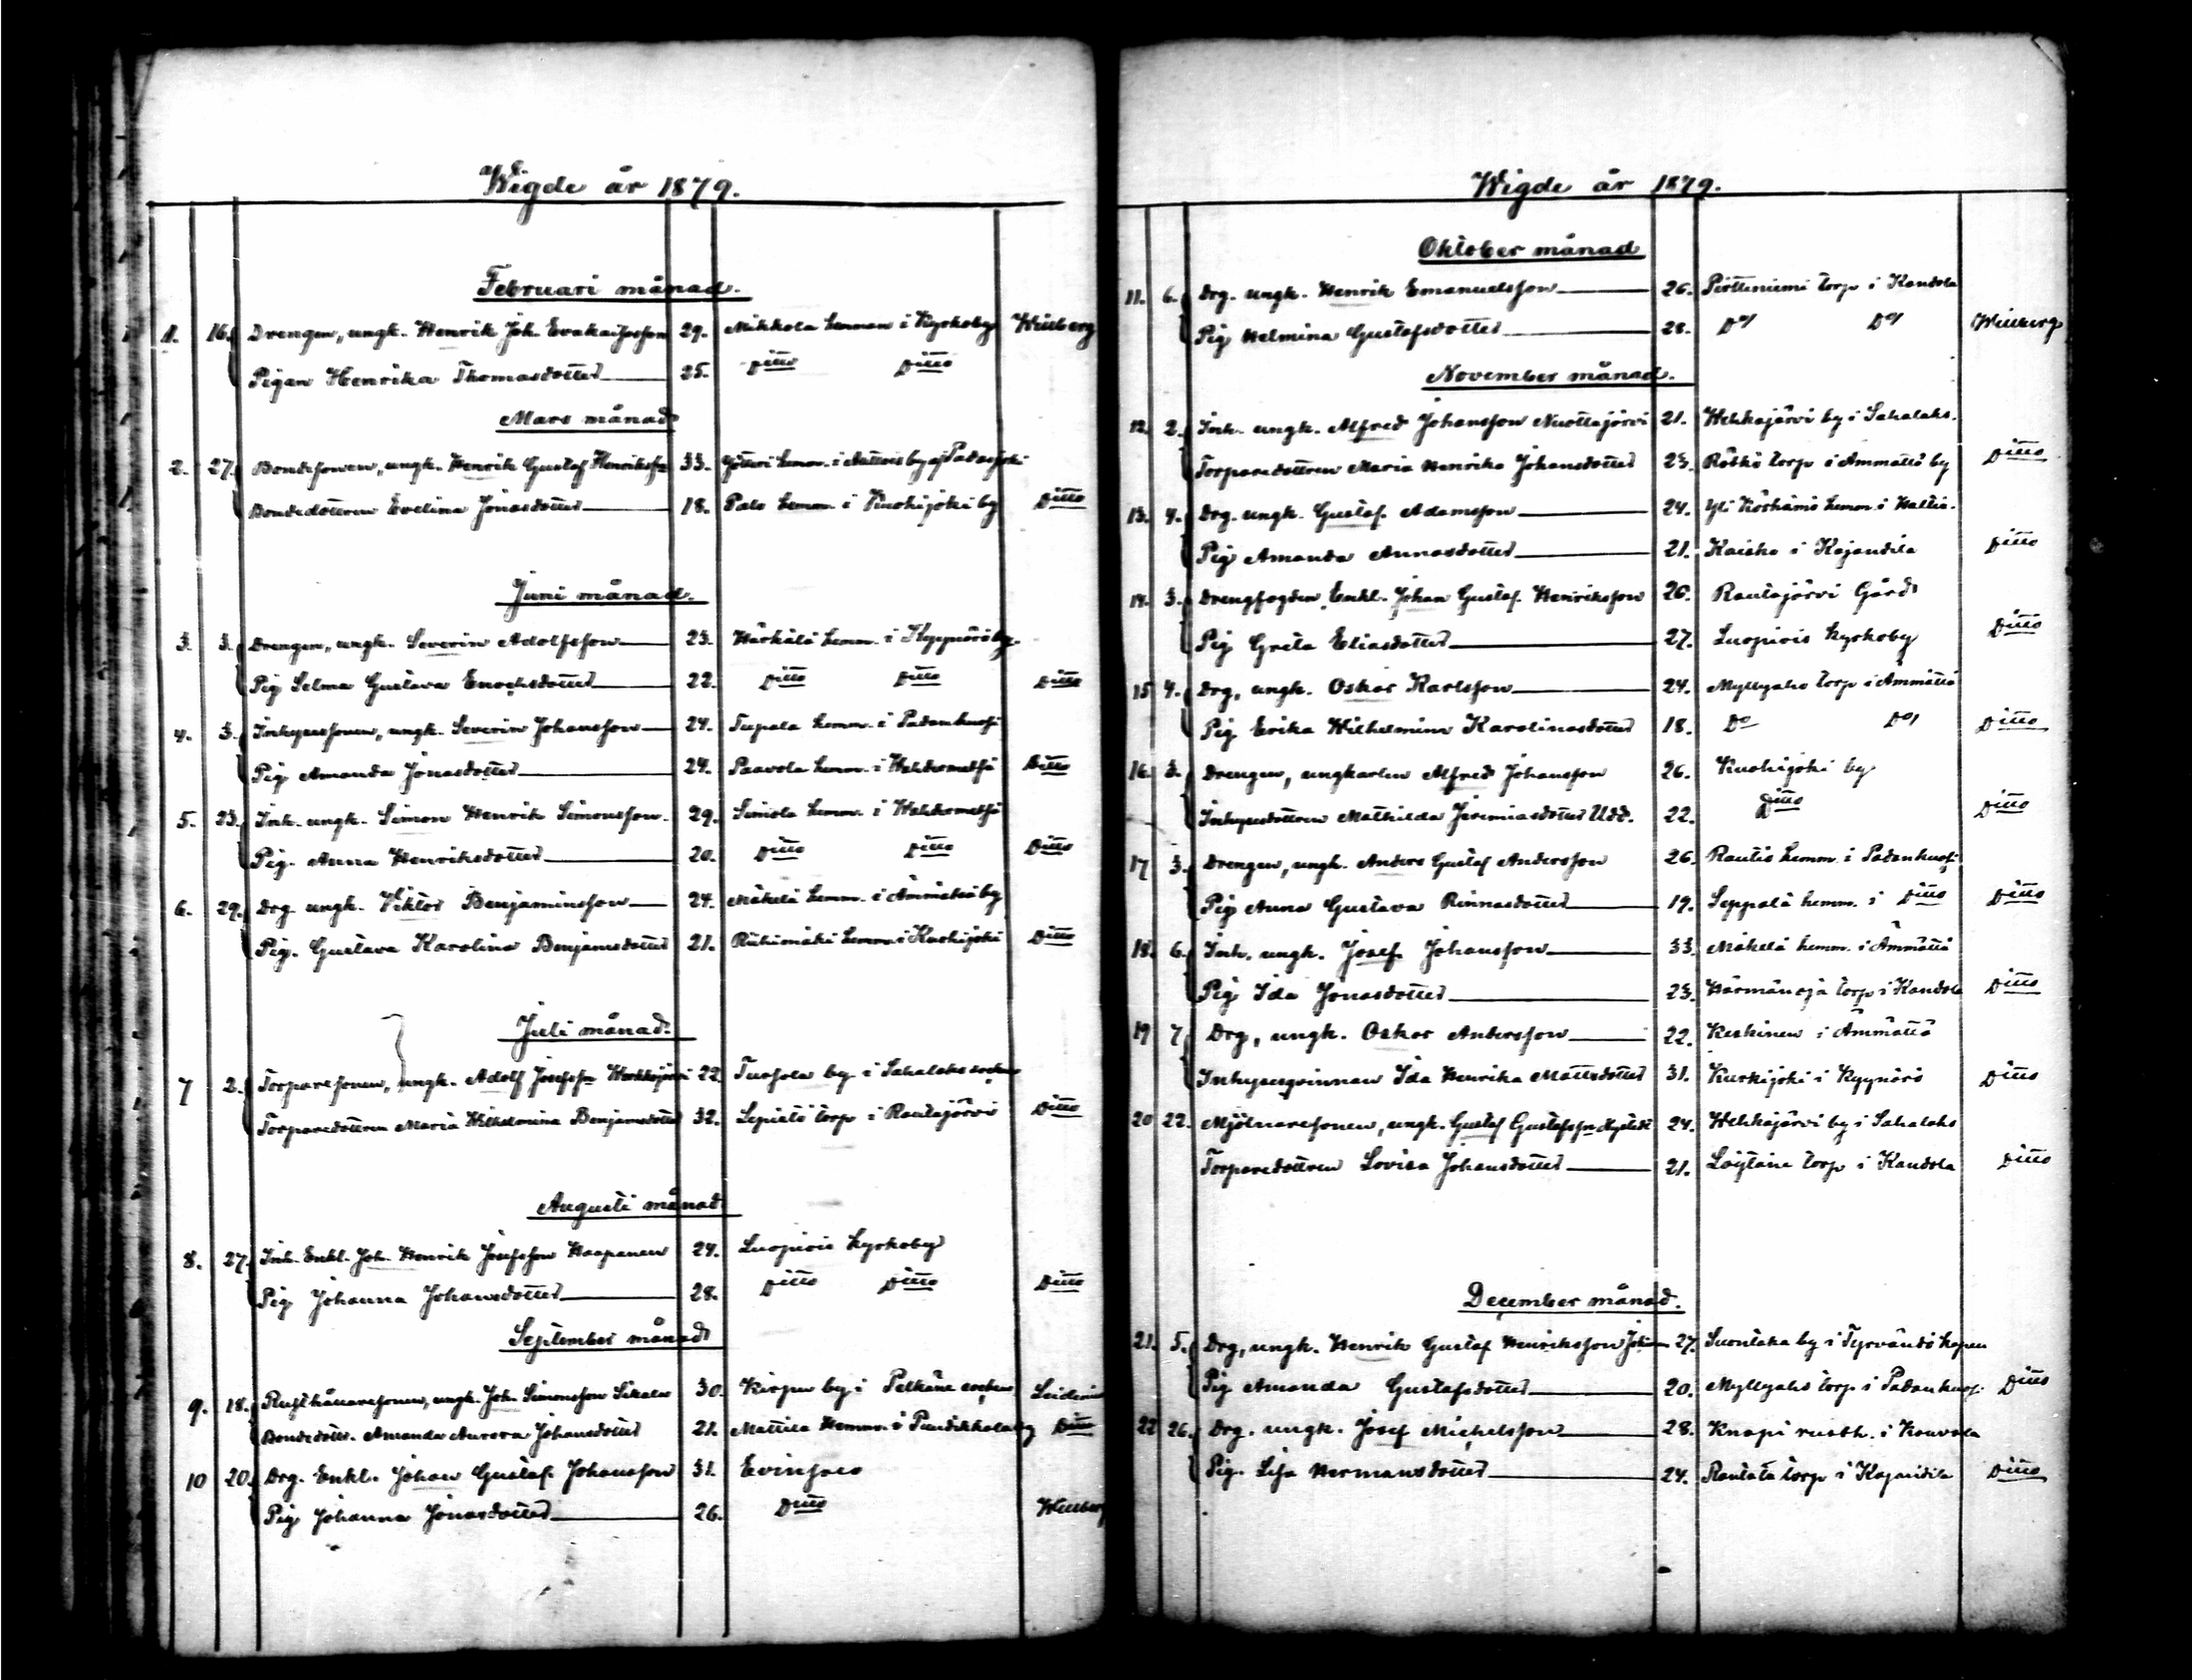 Wigde år 1879.
Februari månad.
1. 16. Drengen, ungk. Henrik Joh. 29. Mikkola hemman i Kyrkoby
Pigan Henrika Thomasdotter 25. Ditto Ditto
Mars månad
2. 27. Bondesonen, ungk. Henrik Gustaf Henriksson 33. hemm. i by af Padasjoki
Bondedottren Evelina Jonasdotter 18. Palo hemm. i Kuohijoki by Ditto
Juni månad.
3. 3. Drengen, ungk. Severin Adolfsson 23. Härkälä hemm. i by.
Pig Selma Gustava Enochsdotter 22. Ditto Ditto Ditto
4. 3. Inhysessonen, ungk. Severin Johansson 24. hemm. i Padankoski
Pig Amanda Jonasdotter 24. Paavola hemm. i Ditto
5. 23. Inh. ungk. Simon Henrik Simonsson. 29. Simola hemm. i
Pig. Anna Henriksdotter 20. Ditto Ditto Ditto
6. 29. Drg. ungk. Viktor Benjaminsson 24. Mäkelä hemm. i Ämmätsä by
Pig. Gustava Karolina Benjamsdotter 21. Riihimäki hemm. i Kuohijoki Ditto
Juli månad.
7 2. Torparesonen, ungk. Adolf Josefsson 22. by i Sahalaks socken
Torparedottren Maria Wilhelmina Benjamsdotter 32. torp i Rautajärvi Ditto
Augusti månad
8. 27. Inh. Enkl. Joh. Henrik Josefsson Haapanen 24. Luopiois kyrkoby
Pig Johanna Johansdotter 28. Ditto Ditto Ditto
September månad
9. 18. Rusthållaresonen, ungk. Joh. Simonsson 30. by i Pelkäne socken
Bondedottr. Amanda Aurora Johansdotter 21. Mattila Hemm. i Puutikkala by Ditto
10 20. Drg. Enkl. Johan Gustaf Johansson 31. Evinsalo
Pig Johanna Jonasdotter 26. Ditto
Wigde år 1879.
Oktober månad
11. 6. Drg. ungk. Henrik Emanuelsson 26. torp i Kandola
Pig Helmina Gustafsdotter 28. Do Do
November månad.
12. 2. Inh. ungk. Alfred Johansson Nuottajärvi 21. Wehkajärvi by i Sahalaks.
Torparedottren Maria Henrika Johansdotter 23. torp i Ämmättä by Ditto
13. 4. Drg. ungk. Gustaf Adamsson 24. Yli hemm. i
Pig Amanda Annasdotter 21. i Kajandila Ditto
14. 3. Drengfogden, Enkl. Johan Gustaf Henriksson 26. Rautajärvi Gård
Pig Greta Eliasdotter 27. Luopiois kyrkoby Ditto
15 4. Drg, ungk. Oskar Karlsson 24. Myllyaho torp i Ämmättä
Pig Erika Wilhelmina Karolinasdotter 18. Do Do Ditto
16. 3. Drengen, ungkarlen Alfred Johansson 26. Kuohijoki by
Inhysesdottren Mathilda Jeremiasdotter Udd. 22. Ditto Ditto
17 3. Drengen, ungk. Anders Gustaf Andersson 26. Rautio hemm. i Padankoski
Pig Anna Gustava 19. Seppälä hemm. i Ditto Ditto
18. 6. Inh. ungk. Josef Johansson 33. Mäkelä hemm. i Ämmättä
Pig Ida Jonasdotter 23. torp i Kandola Ditto
19 7. Drg, ungk. Oskar Andersson 22. Keskinen i Ämmättä
Inhysesqvinnan Ida Henrika Mattsdotter 31. i Ditto
20 22. Mjölnaresonen, ungk. Gustaf Gustafsson 24. Wehkajärvi by i Sahalaks
Torparedottren Lovisa Johansdotter 21. Löytäne torp i Kandola Ditto
December månad.
21. 5. Drg, ungk. Henrik Gustaf Henriksson 27. Suontaka by i Tyrväntö kapen
Pig Amanda Gustafsdotter 20. Myllyaho torp i Ditto
22 26. Drg. ungk. Josef Michelsson 28. Knapi rusth. i
Pig. Lisa Hermansdotter 24. torp i Kajandila Ditto